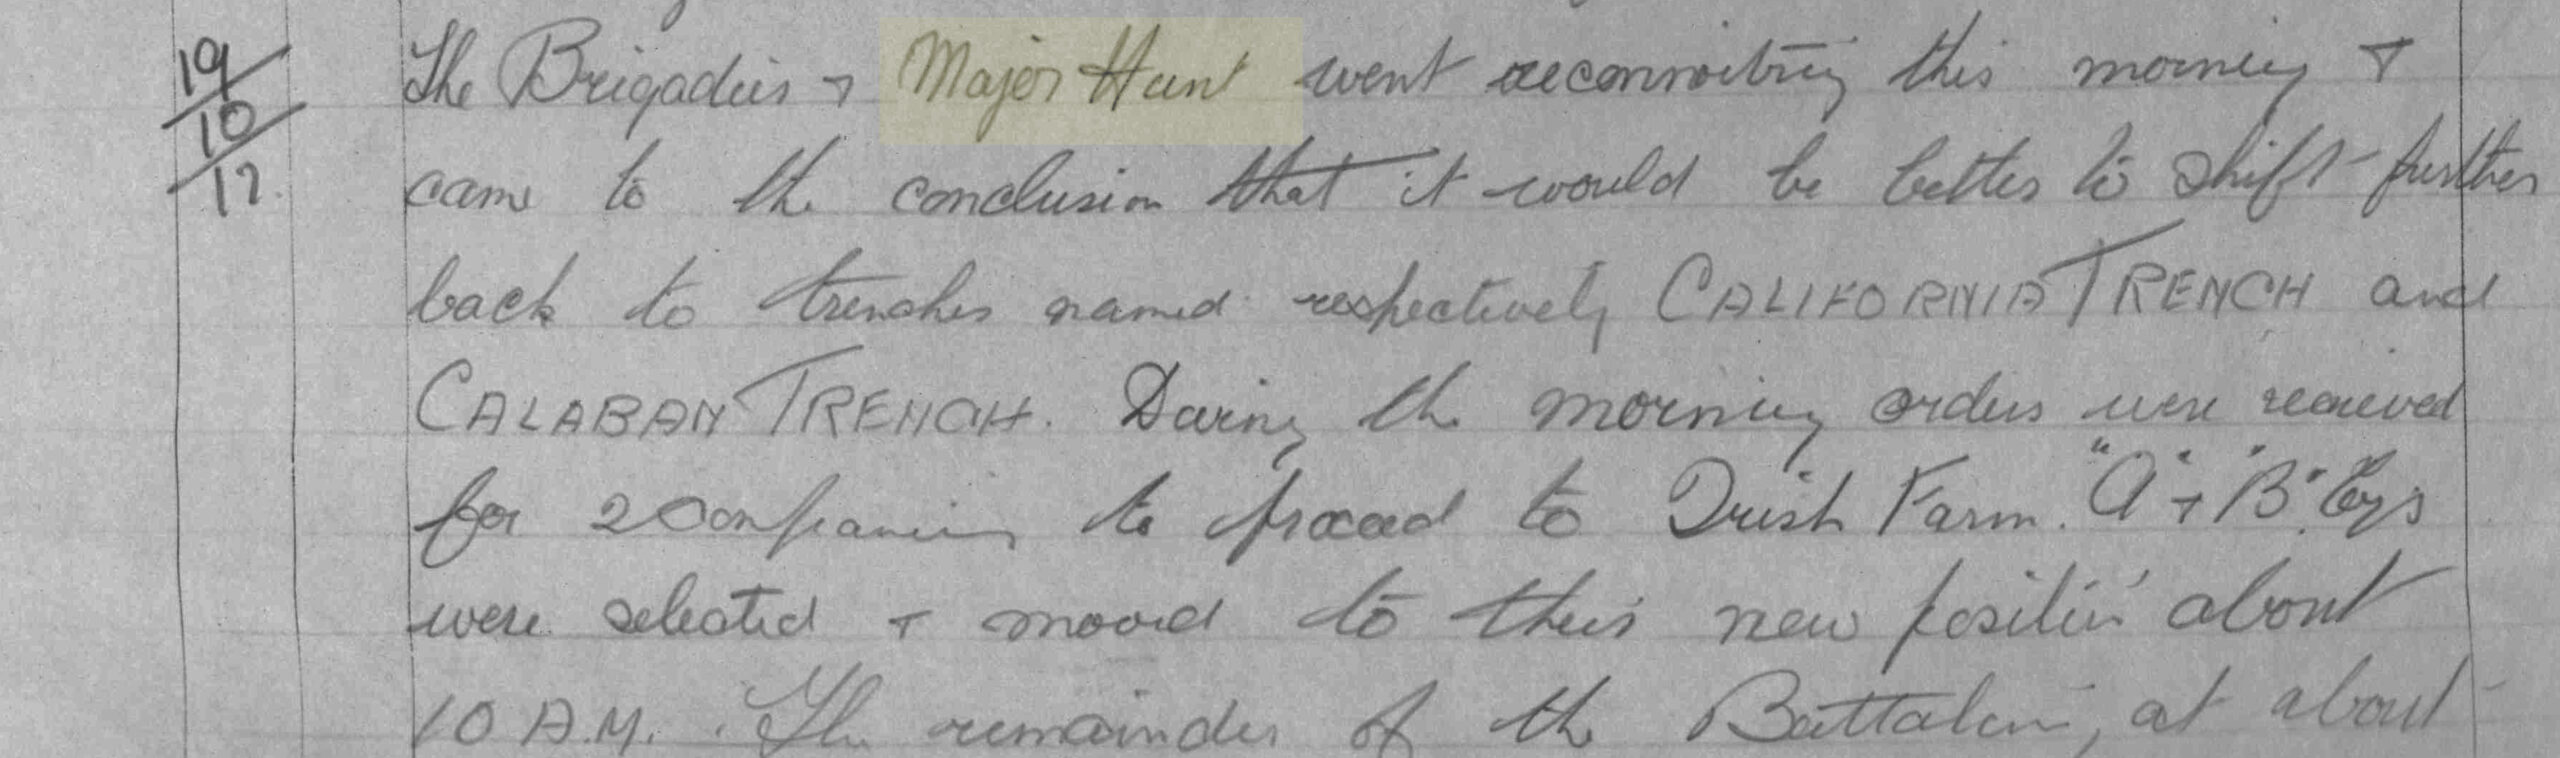 19/10/17. The Brigadier & Major Hunt went reconnoitring this morning &
came to the conclusion that it would be better to shift further
back to trenches named respectively CALIFORNIA TRENCH and
CALABAN TRENCH. During the morning orders were received
for 2 Companies to proceed to Irish Farm. "A" & "B" Coys
were selected & moved to their new position about
10 A.M. The remainder of the Battalion, at about